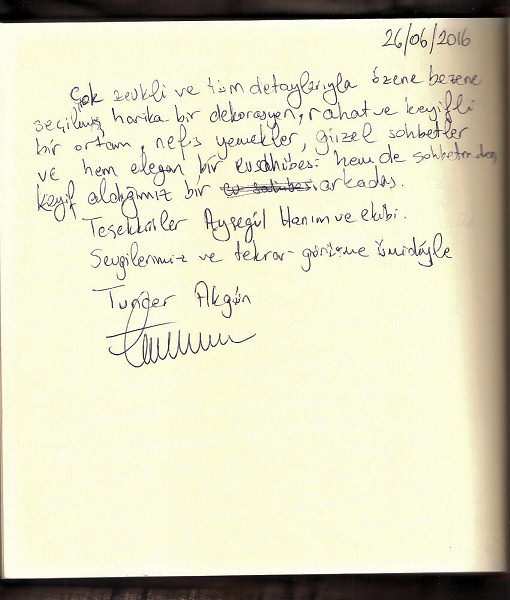 26/06/2016
Çok zevkli ve tüm detaylarıyla özene bezene
seçilmiş harika bir dekorasyon, rahat ve keyifli
bir ortam, nefis yemekler, güzel sohbetler
ve hem elegan bir ev sahibesi hem de sohbetinden
keyif aldığımız bir ev sahibesi arkadaş.
Teşekkürler Ayşegül Hanım ve ekibi.
Sevgilerimiz ve tekrar görüşme ümidiyle
Akgün